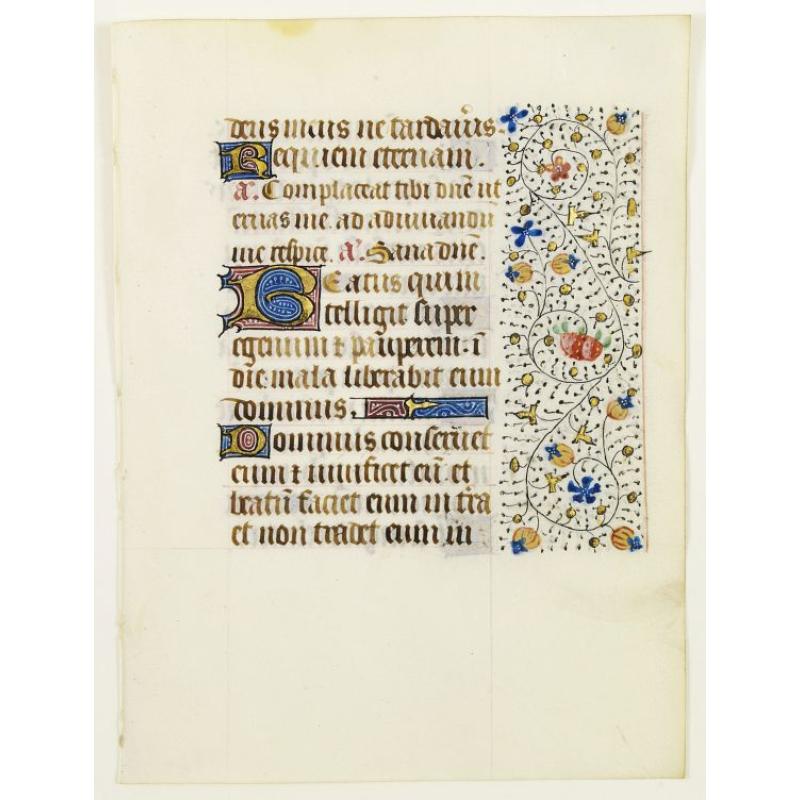 deus meus ne tardav̄is.
Requiem eternam.
a͞. Complaceat tibi dn̄e ut
eruas me. ad adiuuandū
me respice. a͞. Sana dn̄e.
Beatus qui in
telligit super
egenum ⁊ pauperem. ī
die mala liberabit eum
dominus.
Dominus conseruet
eum ⁊ uiuificet eū. et
beatū faciet eum in tr̄a
et non tradet eum in